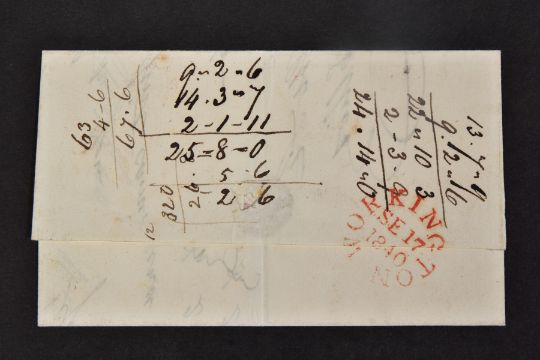 9 " 2 " 6
14 . 3 " 7
2 - 1 - 11
25 = 8 - 0
. 5 . 6
26 . 2 . 6
320
12
63
4 - 6
67 . 6
13 . 7 " 9
9 . 12 " 6
22 " 10 3
2 - 3 . 9
24 . 14 " 0
WORKINGTON
SE 17
1840